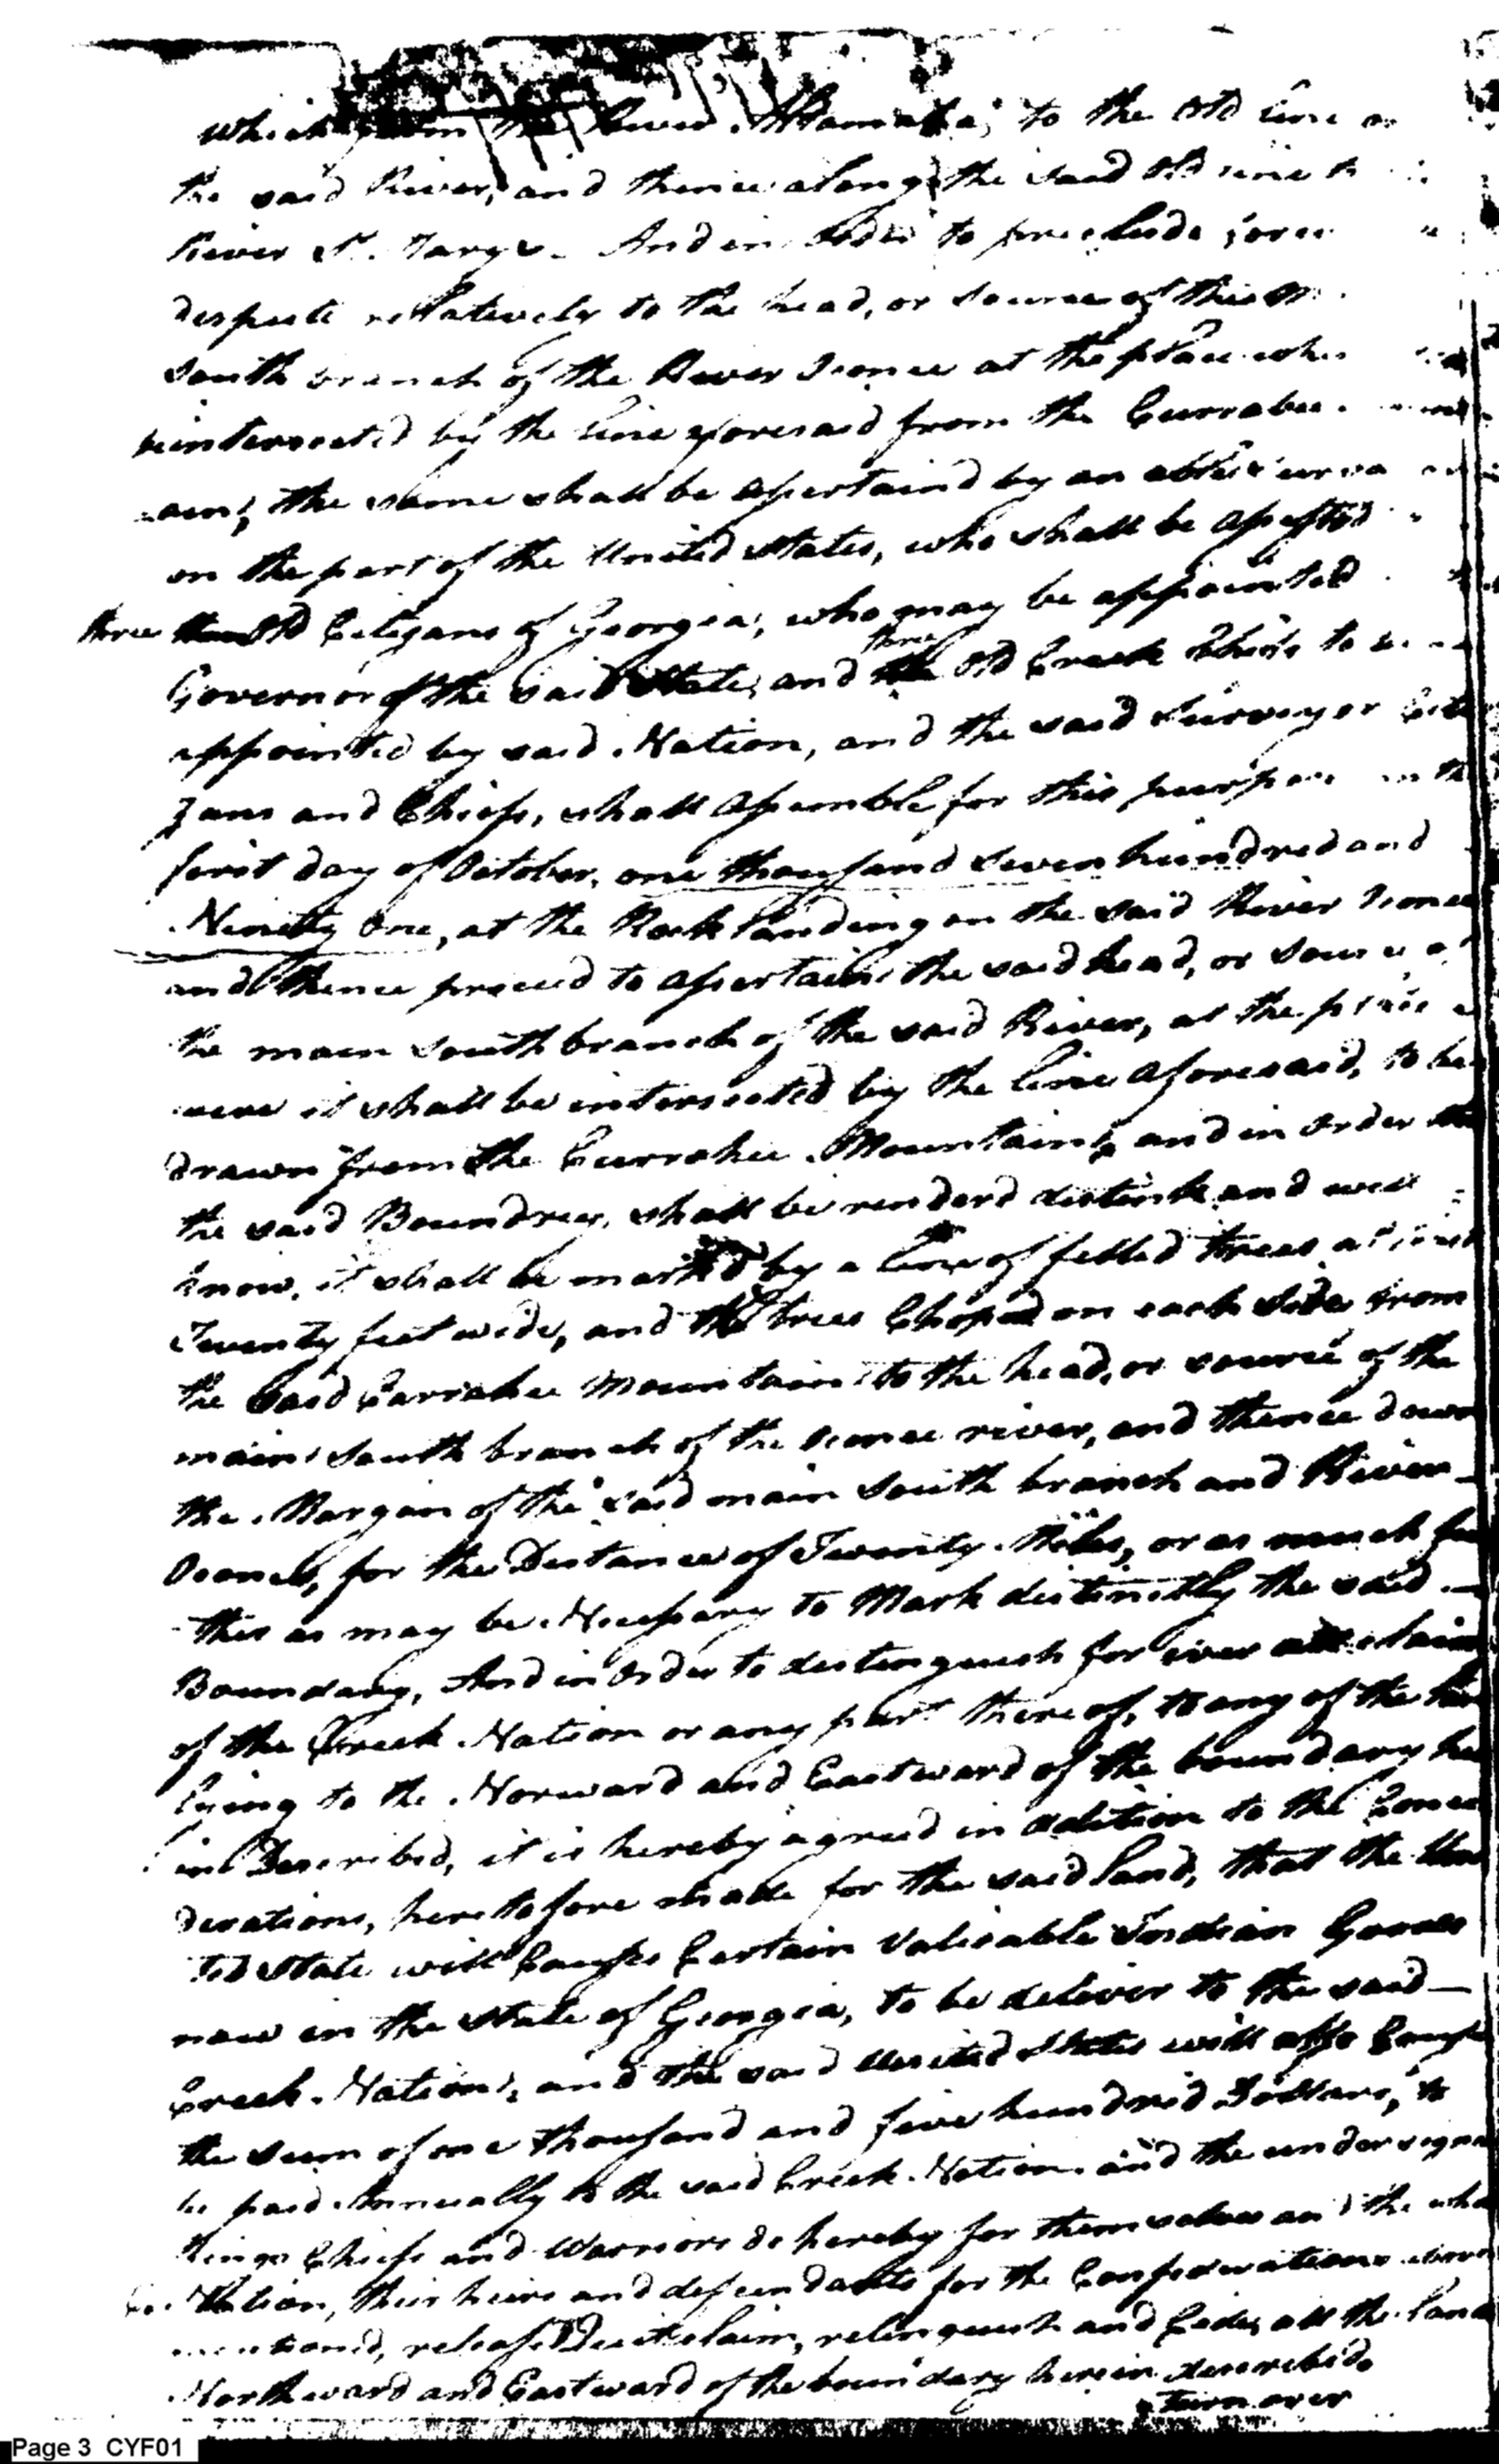 which from the River Altamaha, to the old line on
the said River, and thence along the said old line to
River St. Marys. And in order to preclude forev
despute rellatively to the head, or source of the m
South branch of the River Oconee at the place whe
be intersected by the Line aforesaid from the Currahee
ain, the same shall be assertaind by an able surva
on the part of the United States, who shall be assested
three old Citizans of Georgia, who may be appointed
Governor of the said State, and three old Creek Chiefs to be
appointed by said Nation, and the said Surveyor Citi
zans and Chiefs, shall assemble for this purpose on the
first day of October, one thousand seven hundred and
Ninety one, at the Rock landing on the said River Oconee
and thence proceed to assertain the said head, or source of
the main south branch of the said River, at the place
were it shall be intersected by the line aforesaid, to be
drawn from the Currahee Mountain, and in order that
the said Boundrey, shall be renderd distink and well
know, it shall be marked by a line of felled trees at least
Twenty feet wide, and the trees Choped on each side from
the said Carrahee Mountain to the head, or source of the
main South branch of the Oconee river, and thence down
the Margan of the said main South branch and River
Oconee, for the Distance of Twenty Miles, or as much fur
ther as may be Necessary to Mark distinctly the said
Boundary, And in order to destinguesh for ever all claims
of the Creek Nation or any part there of, to any of the land
lying to the Norward and Eastward of the boundary here
in Described, it is hereby agreed in adition to the Consi
derations, heretofore made for the said Land, that the Uni
ted State will Causse Certain Valieable Indian Goods
now in the State of Georgia, to be deliver to the said
Creek Nation, and the said United States will also Causse
the sum of one thousand and five hundred Dollars, to
be paid Annually to the said Creek Nation and the undersigned
Kings Chiefs and Warriors do hereby for themselves and the whole
Nation, their heirs and for the above
mentioned, release Quit claim, relinquesh and Cede, all the Land
Northward and Eastward of the boundary herein described.
turn over
Page 3 CYF01